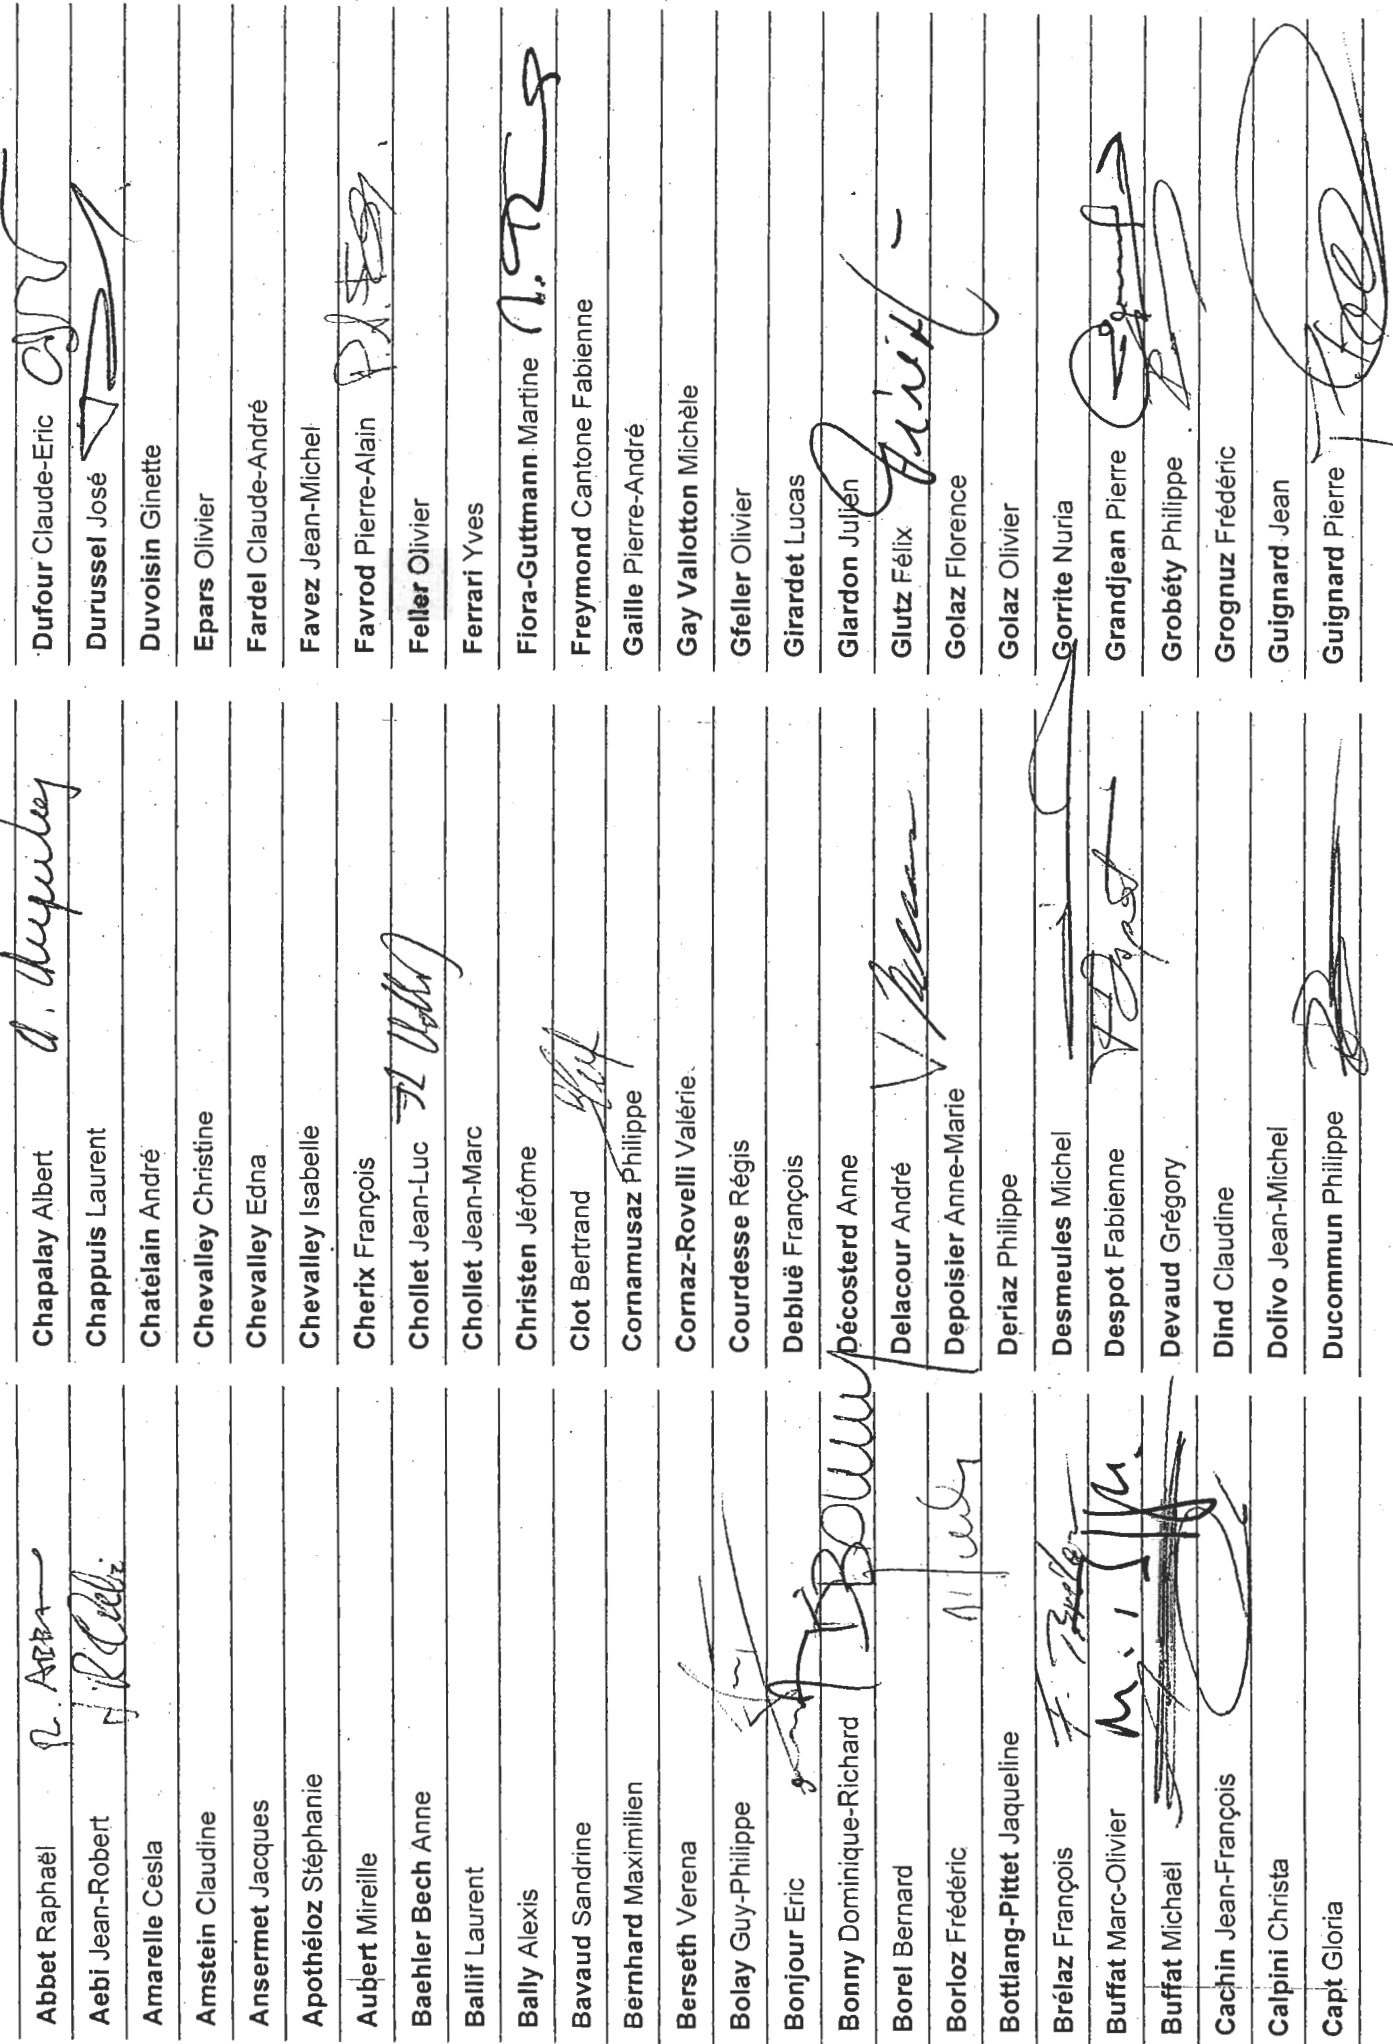 Abbet Raphaël R. ABBET
Aebi Jean-Robert JR Aebi
Amarelle Cesla
Amstein Claudine
Ansermet Jacques
Apothéloz Stéphanie
Aubert Mireille
Baehler Bech Anne
Ballif Laurent
Bally Alexis
Bavaud Sandrine
Bernhard Maximilien
Berseth Verena
Bolay Guy-Philippe
Bonjour Eric
Bonny Dominique-Richard
Borel Bernard
Borloz Frédéric
Bottlang-Pittet Jaqueline
Brélaz François
Buffat Marc-Olivier
Buffat Michaël
Cachin Jean-François
Calpini Christa
Capt Gloria
Chapalay Albert
Chappuis Laurent
Chatelain André
Chevalley Christine
Chevalley Edna
Chevalley Isabelle
Cherix François
Chollet Jean-Luc
Chollet Jean-Marc
Christen Jérôme
Clot Bertrand
Cornamusaz Philippe
Cornaz-Rovelli Valérie
Courdesse Régis
Debluë François
Décosterd Anne
Delacour André
Depoisier Anne-Marie
Deriaz Philippe
Desmeules Michel
Despot Fabienne
Devaud Grégory
Dind Claudine
Dolivo Jean-Michel
Ducommun Philippe
Dufour Claude-Eric
Durussel José
Duvoisin Ginette
Epars Olivier
Fardel Claude-André
Favez Jean-Michel
Favrod Pierre-Alain
Feller Olivier
Ferrari Yves
Fiora-Guttmann Martine
Freymond Cantone Fabienne
Gaille Pierre-André
Gay Vallotton Michèle
Gfeller Olivier
Girardet Lucas
Glardon Julien
Glutz Félix
Golaz Florence
Golaz Olivier
Gorrite Nuria
Grandjean Pierre
Grobéty Philippe
Grognuz Frédéric
Guignard Jean
Guignard Pierre